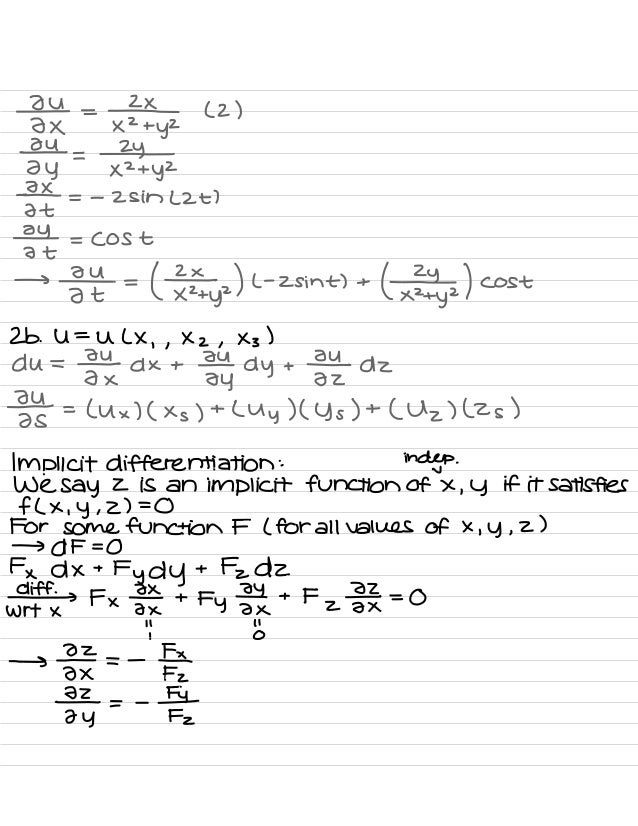 ∂u/∂x = 2x/(x²+y²) (2)
∂u/∂y = 2y/(x²+y²)
∂x/∂t = -2sin(2t)
∂y/∂t = cost
→ ∂u/∂t = (2x/(x²+y²))(-2sint) + (2y/(x²+y²)) cost
2b. u=u(x₁, x₂, x₃)
du = ∂u/∂x dx + ∂u/∂y dy + ∂u/∂z dz
∂u/∂s = (uₓ)(xₛ)+(u_y)(yₛ)+(u_z)(zₛ)
Implicit differentiation:
indep.
We say z is an implicit function of x, y if it satisfies
f(x,y,z)=0
For some function F (for all values of x,y,z)
→ dF=0
Fₓ dx + F_y dy + F_z dz
diff. wrt x → Fₓ ∂x/∂x + F_y ∂y/∂x + F_z ∂z/∂x = 0
" "
1 0
→ ∂z/∂x = - Fₓ/F_z
∂z/∂y = - F_y/F_z